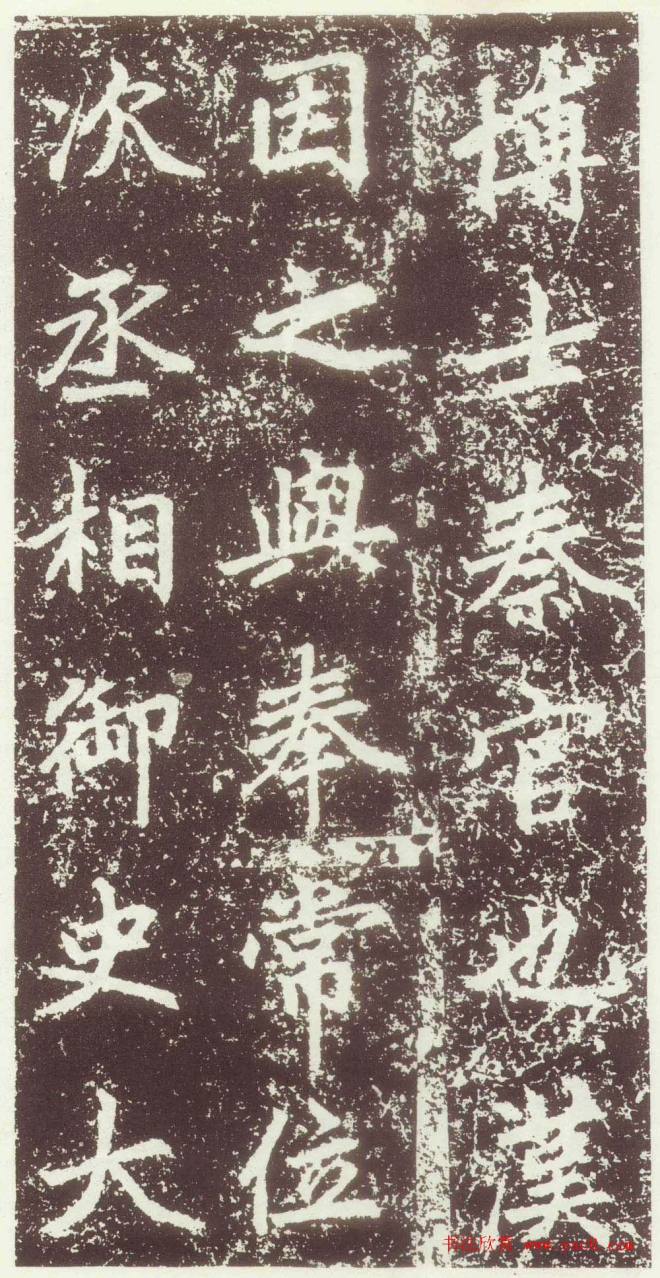 博士秦官也漢
因之與奉常位
次丞相御史大
书法欣赏